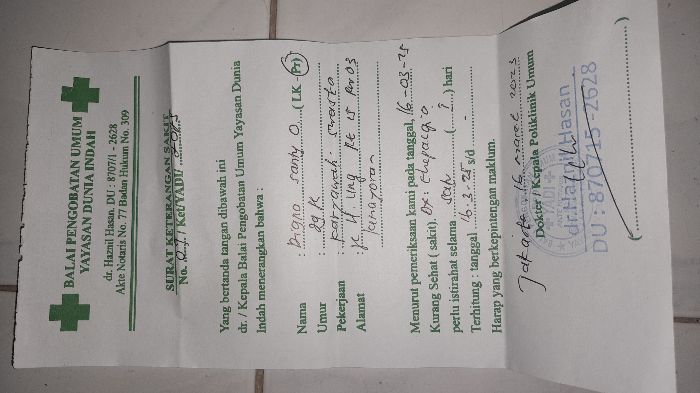 BALAI PENGOBATAN UMUM
YAYASAN DUNIA INDAH
dr. Hazmil Hasan, DU : 8707/1 - 2628
Akte Notaris No. 77 Badan Hukum No. 309
SURAT KETERANGAN SAKIT
No. / Ket/YADI/
Yang bertanda tangan dibawah ini
dr. / Kepala Balai Pengobatan Umum Yayasan Dunia
Indah menerangkan bahwa :
Nama : santy O (LK - Pr)
Umur : 29
Pekerjaan : Karyawati
Alamat : Rt 15 Rw 03
Kemayoran
Menurut pemeriksaan kami pada tanggal, 16-03-25
Kurang Sehat ( sakit).
perlu istirahat selama satu ( ) hari
Terhitung : tanggal 16.3-25 s/d -
Harap yang berkepintengan maklum.
Jakarta 16 maret
Dokter / Kepala Poliklinik Umum
dr. Hazmil Hasan
DU : 870715 - 2628
(..............................)